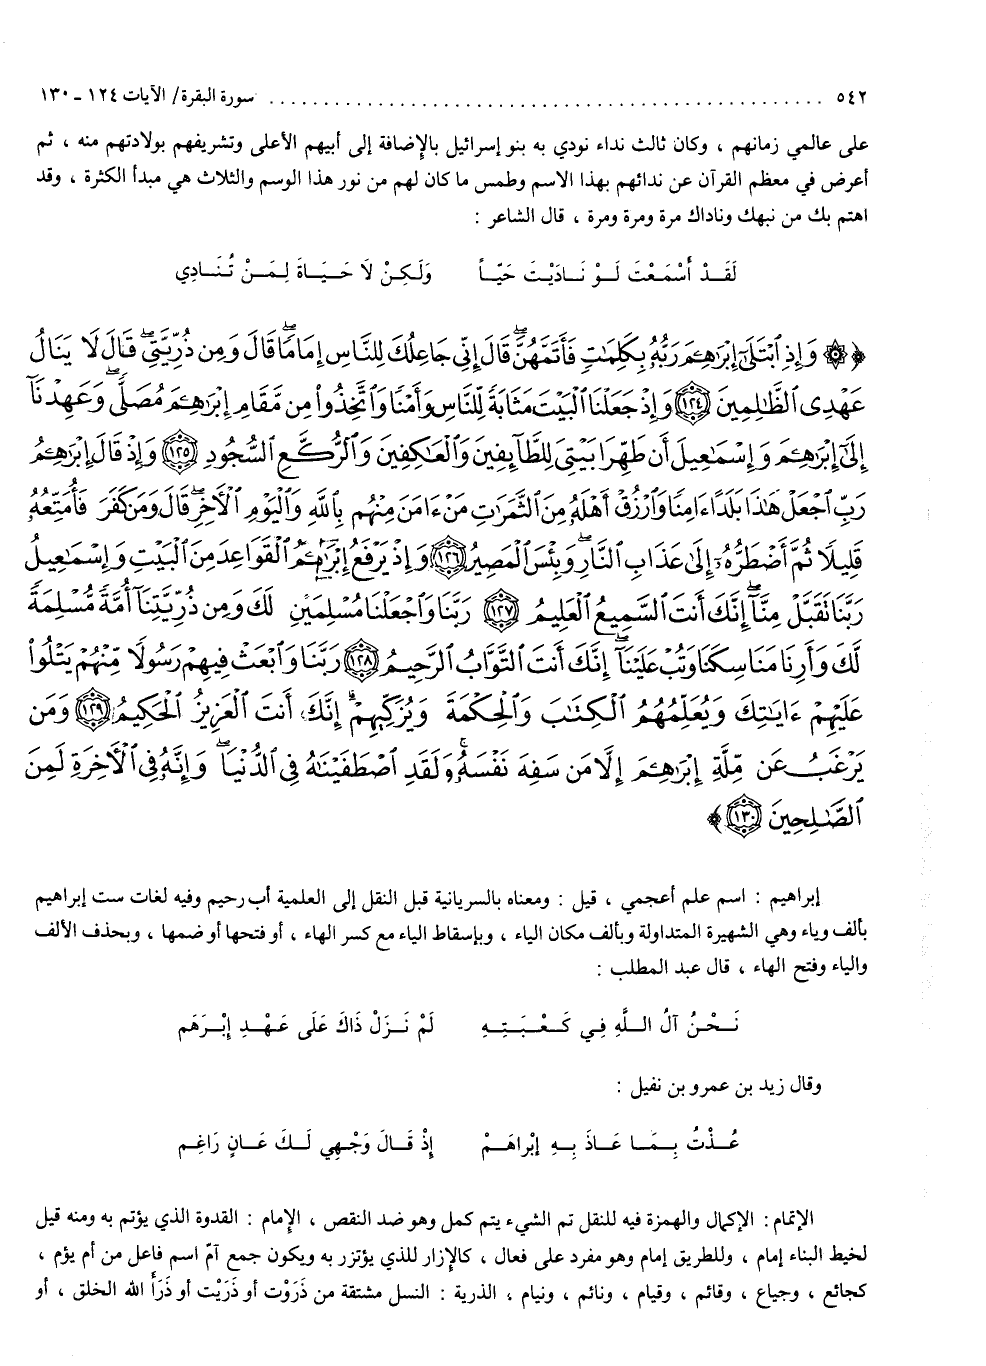 ٥٤٢ .................................................. سورة البقرة/ الآيات ١٢٤ ـ ١٣٠
على عالمي زمانهم ، وكان ثالث نداء نودي به بنو إسرائيل بالإضافة إلى أبيهم الأعلى وتشريفهم بولادتهم منه ، ثم
أعرض في معظم القرآن عن ندائهم بهذا الاسم وطمس ما كان لهم من نور هذا الوسم والثلاث هي مبدأ الكثرة ، وقد
اهتم بك من نبهك وناداك مرة ومرة ومرة ، قال الشاعر :
لَقَدْ أَسْمَعْتَ لَوْ نَادَيْتَ حَيّاً وَلَكِنْ لَا حَيَاةَ لِمَنْ تُنَادِي
﴿ ۞ وَإِذِ ٱبْتَلَىٰٓ إِبْرَٰهِـۧمَ رَبُّهُۥ بِكَلِمَٰتٍ فَأَتَمَّهُنَّۖ قَالَ إِنِّى جَاعِلُكَ لِلنَّاسِ إِمَامًاۖ قَالَ وَمِن ذُرِّيَّتِىۖ قَالَ لَا يَنَالُ
عَهْدِى ٱلظَّٰلِمِينَ ١٢٤ وَإِذْ جَعَلْنَا ٱلْبَيْتَ مَثَابَةً لِّلنَّاسِ وَأَمْنًا وَٱتَّخِذُوا۟ مِن مَّقَامِ إِبْرَٰهِـۧمَ مُصَلًّىۖ وَعَهِدْنَآ
إِلَىٰٓ إِبْرَٰهِـۧمَ وَإِسْمَٰعِيلَ أَن طَهِّرَا بَيْتِىَ لِلطَّآئِفِينَ وَٱلْعَٰكِفِينَ وَٱلرُّكَّعِ ٱلسُّجُودِ ١٢٥ وَإِذْ قَالَ إِبْرَٰهِـۧمُ
رَبِّ ٱجْعَلْ هَٰذَا بَلَدًا ءَامِنًا وَٱرْزُقْ أَهْلَهُۥ مِنَ ٱلثَّمَرَٰتِ مَنْ ءَامَنَ مِنْهُم بِٱللَّهِ وَٱلْيَوْمِ ٱلْءَاخِرِۖ قَالَ وَمَن كَفَرَ فَأُمَتِّعُهُۥ
قَلِيلًا ثُمَّ أَضْطَرُّهُۥٓ إِلَىٰ عَذَابِ ٱلنَّارِۖ وَبِئْسَ ٱلْمَصِيرُ ١٢٦ وَإِذْ يَرْفَعُ إِبْرَٰهِـۧمُ ٱلْقَوَاعِدَ مِنَ ٱلْبَيْتِ وَإِسْمَٰعِيلُ
رَبَّنَا تَقَبَّلْ مِنَّآۖ إِنَّكَ أَنتَ ٱلسَّمِيعُ ٱلْعَلِيمُ ١٢٧ رَبَّنَا وَٱجْعَلْنَا مُسْلِمَيْنِ لَكَ وَمِن ذُرِّيَّتِنَآ أُمَّةً مُّسْلِمَةً
لَّكَ وَأَرِنَا مَنَاسِكَنَا وَتُبْ عَلَيْنَآۖ إِنَّكَ أَنتَ ٱلتَّوَّابُ ٱلرَّحِيمُ ١٢٨ رَبَّنَا وَٱبْعَثْ فِيهِمْ رَسُولًا مِّنْهُمْ يَتْلُوا۟
عَلَيْهِمْ ءَايَٰتِكَ وَيُعَلِّمُهُمُ ٱلْكِتَٰبَ وَٱلْحِكْمَةَ وَيُزَكِّيهِمْۚ إِنَّكَ أَنتَ ٱلْعَزِيزُ ٱلْحَكِيمُ ١٢٩ وَمَن
يَرْغَبُ عَن مِّلَّةِ إِبْرَٰهِـۧمَ إِلَّا مَن سَفِهَ نَفْسَهُۥۚ وَلَقَدِ ٱصْطَفَيْنَٰهُ فِى ٱلدُّنْيَاۖ وَإِنَّهُۥ فِى ٱلْءَاخِرَةِ لَمِنَ
ٱلصَّٰلِحِينَ ١٣٠ ﴾
إبراهيم : اسم علم أعجمي ، قيل : ومعناه بالسريانية قبل النقل إلى العلمية أب رحيم وفيه لغات ست إبراهيم
بألف وياء وهي الشهيرة المتداولة وبألف مكان الياء ، وبإسقاط الياء مع كسر الهاء ، أو فتحها أو ضمها ، وبحذف الألف
والياء وفتح الهاء ، قال عبد المطلب :
نَحْنُ آلُ اللَّهِ فِي كَعْبَتِهِ لَمْ نَزَلْ ذَاكَ عَلَى عَهْدِ إِبْرَهَم
وقال زيد بن عمرو بن نفيل :
عُذْتُ بِمَا عَاذَ بِهِ إبْراهَمْ إِذْ قَالَ وَجْهِي لَكَ عَانٍ رَاغِم
الإتمام : الإكمال والهمزة فيه للنقل تم الشيء يتم كمل وهو ضد النقص ، الإمام : القدوة الذي يؤتم به ومنه قيل
لخيط البناء إمام ، وللطريق إمام وهو مفرد على فعال ، كالإزار للذي يؤتزر به ويكون جمع آمّ اسم فاعل من أم يؤم ،
كجائع ، وجياع ، وقائم ، وقيام ، ونائم ، ونيام ، الذرية : النسل مشتقة من ذَرَوْت أو ذَرَيْت أو ذَرَأَ الله الخلق ، أو